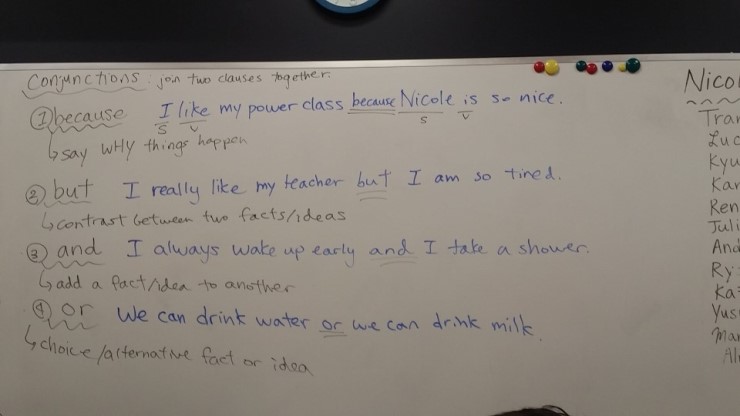 Conjunctions: join two clauses together.
① because I like my power class because Nicole is so nice.
S V S V
↳ say WHY things happen
② but I really like my teacher but I am so tired.
↳ contrast between two facts/ideas
③ and I always wake up early and I take a shower.
↳ add a fact/idea to another
④ or We can drink water or we can drink milk.
↳ choice/alternative fact or idea
Nico
Tran
Luc
Kyu
Kar
Ren
Juli
And
Ry
Ka
Yus
Mar